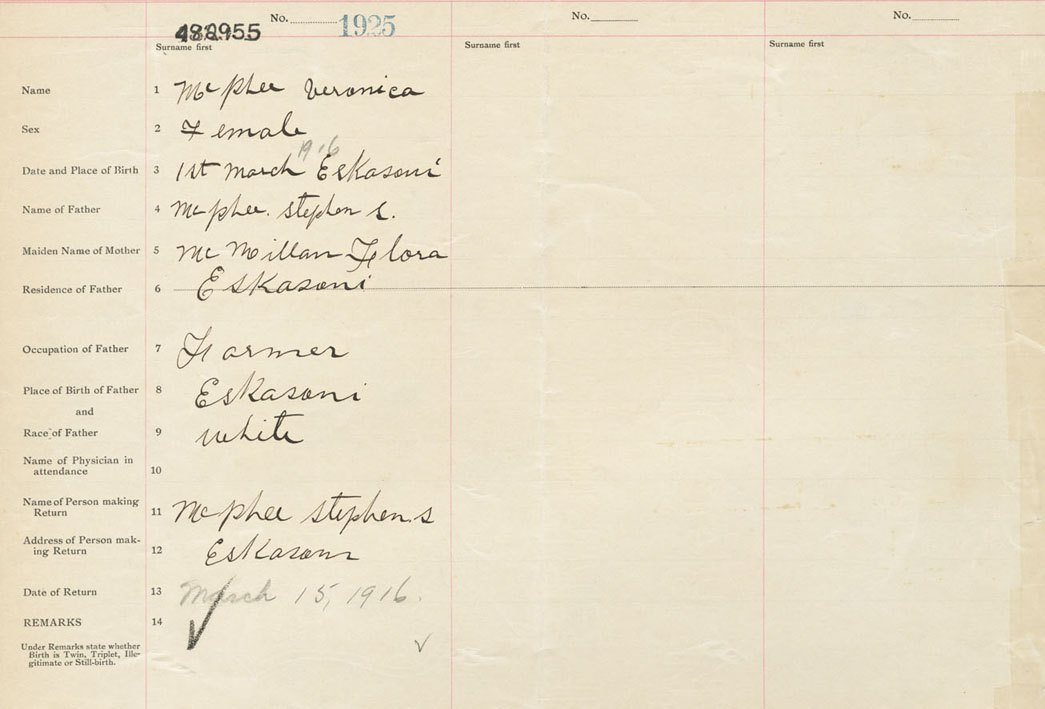 No. 1925 No. No.
Surname first Surname first Surname first
Name 1 McPhee Veronica
Sex 2 Female
1916
Date and Place of Birth 3 1st March Eskasoni
Name of Father 4 McPhee. Stephen S.
Maiden Name of Mother 5 McMillan Flora
Residence of Father 6 Eskasoni
Occupation of Father 7 Farmer
Place of Birth of Father 8 Eskasoni
and
Race of Father 9 White
Name of Physician in
attendance 10
Name of Person making
Return 11 McPhee Stephen S
Address of Person mak-
ing Return 12 Eskasoni
Date of Return 13 March 15, 1916.
REMARKS 14
Under Remarks state whether
Birth is Twin, Triplet, Ille-
gitimate or Still-birth.